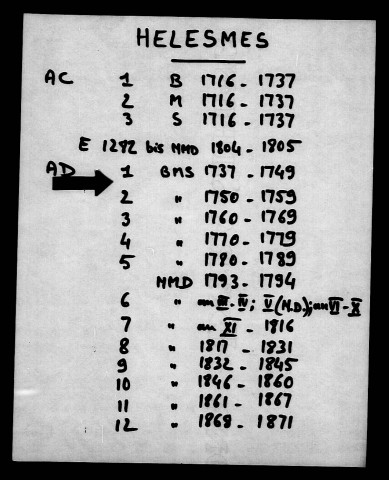 HELESMES
AC 1 B 1716 - 1737
2 M 1716 - 1737
3 S 1716 - 1737
E 1292 bis MMD 1804 - 1805
AD 1 BMS 1737 - 1749
2 " 1750 - 1759
3 " 1760 - 1769
4 " 1770 - 1779
5 " 1780 - 1789
NMD 1793 - 1794
6 " an III - IV ; V (N.D.) ; an VI - X
7 " an XI - 1816
8 " 1817 - 1831
9 " 1832 - 1845
10 " 1846 - 1860
11 " 1861 - 1867
12 " 1868 - 1871